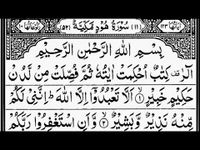 (١١) سُوْرَةُ هُوْدٍ مَكِّيَّةٌ (٥٢)
بِسْمِ اللّٰهِ الرَّحْمٰنِ الرَّحِيْمِ
الٓرٰ كِتٰبٌ اُحْكِمَتْ اٰيٰتُهٗ ثُمَّ فُصِّلَتْ مِنْ لَّدُنْ
حَكِيْمٍ خَبِيْرٍ ١ اَلَّا تَعْبُدُوْٓا اِلَّا اللّٰهَ ؕ اِنَّنِيْ لَكُمْ
مِّنْهُ نَذِيْرٌ وَّبَشِيْرٌ ٢ وَّاَنِ اسْتَغْفِرُوْا رَبَّكُمْ